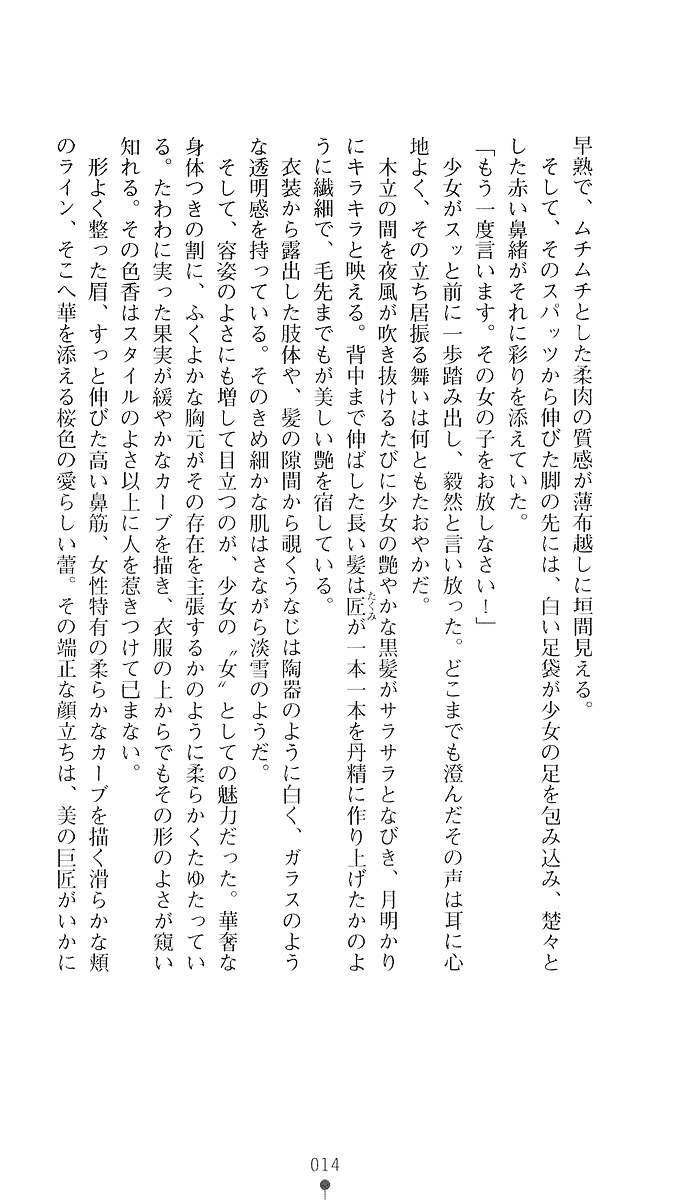 早熟で、ムチムチとした柔肉の質感が薄布越しに垣間見える。
そして、そのスパッツから伸びた脚の先には、白い足袋が少女の足を包み込み、楚々と
した赤い鼻緒がそれに彩りを添えていた。
「もう一度言います。その女の子をお放しなさい！」
少女がスッと前に一歩踏み出し、毅然と言い放った。どこまでも澄んだその声は耳に心
地よく、その立ち居振る舞いは何ともたおやかだ。
木立の間を夜風が吹き抜けるたびに少女の艶やかな黒髪がサラサラとなびき、月明かり
にキラキラと映える。背中まで伸ばした長い髪は匠が一本一本を丹精に作り上げたかのよ
たくみ
うに繊細で、毛先までもが美しい艶を宿している。
衣装から露出した肢体や、髪の隙間から覗くうなじは陶器のように白く、ガラスのよう
な透明感を持っている。そのきめ細かな肌はさながら淡雪のようだ。
そして、容姿のよさにも増して目立つのが、少女の〝女〟としての魅力だった。華奢な
身体つきの割に、ふくよかな胸元がその存在を主張するかのように柔らかくたゆたってい
る。たわわに実った果実が緩やかなカーブを描き、衣服の上からでもその形のよさが窺い
知れる。その色香はスタイルのよさ以上に人を惹きつけて已まない。
形よく整った眉、すっと伸びた高い鼻筋、女性特有の柔らかなカーブを描く滑らかな頬
のライン、そこへ華を添える桜色の愛らしい蕾。その端正な顔立ちは、美の巨匠がいかに
014